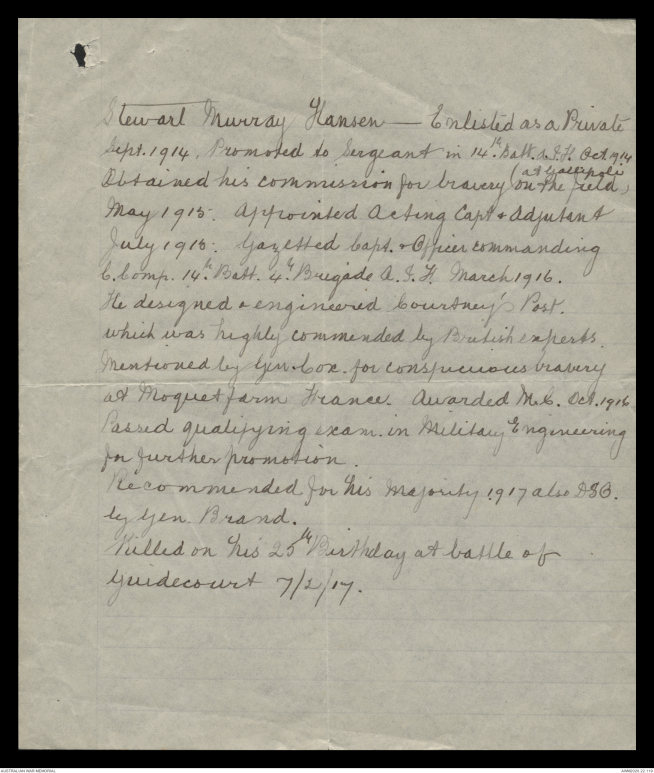 Stewart Murray Hansen — Enlisted as a Private
Sept. 1914. Promoted to Sergeant in 14th Batt. A.I.F. Oct. 1914
(at Gallipoli
Obtained his commission for bravery on the field,
May 1915. Appointed Acting Capt & Adjutant
July 1915. Gazetted Capt. & Officer commanding
C. Comp. 14th Batt. 4th Brigade A.I.F. March 1916.
He designed & engineered Courtney's Post.
which was highly commended by British experts.
Mentioned by Gen. Cox. for conspicuous bravery
at Moquet farm France. Awarded M.C. Oct. 1916
Passed qualifying exam. in Military Engineering
for further promotion.
Recommended for his Majority 1917 also DSO.
by Gen. Brand.
Killed on his 25th Birthday at battle of
Guidecourt 7/2/17.
AUSTRALIAN WAR MEMORIAL